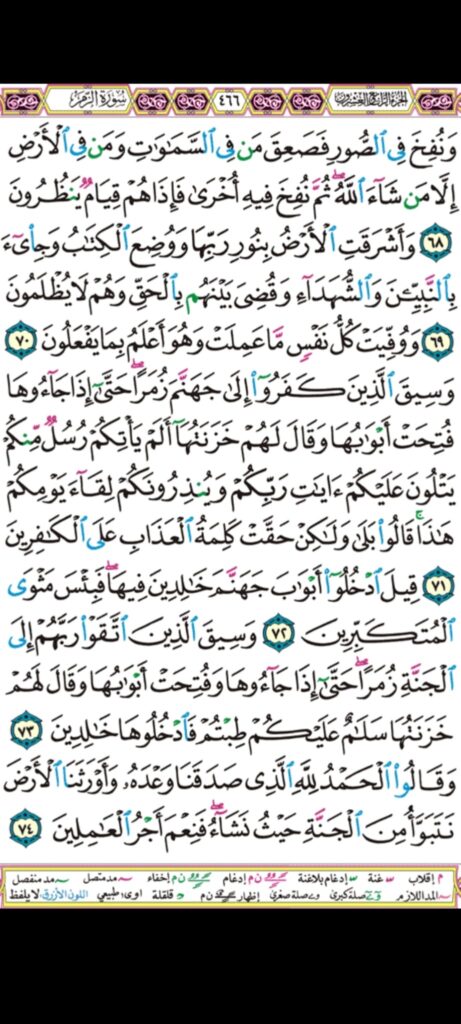 الجزء الرابع والعشرون ٤٦٦ سورة الزمر
وَنُفِخَ فِي ٱلصُّورِ فَصَعِقَ مَن فِي ٱلسَّمَٰوَٰتِ وَمَن فِي ٱلْأَرْضِ
إِلَّا مَن شَآءَ ٱللَّهُۖ ثُمَّ نُفِخَ فِيهِ أُخْرَىٰ فَإِذَا هُمْ قِيَامٌ يَنظُرُونَ
٦٨ وَأَشْرَقَتِ ٱلْأَرْضُ بِنُورِ رَبِّهَا وَوُضِعَ ٱلْكِتَٰبُ وَجِا۟ىٓءَ
بِٱلنَّبِيِّـۧنَ وَٱلشُّهَدَآءِ وَقُضِيَ بَيْنَهُم بِٱلْحَقِّ وَهُمْ لَا يُظْلَمُونَ
٦٩ وَوُفِّيَتْ كُلُّ نَفْسٍ مَّا عَمِلَتْ وَهُوَ أَعْلَمُ بِمَا يَفْعَلُونَ ٧٠
وَسِيقَ ٱلَّذِينَ كَفَرُوٓا۟ إِلَىٰ جَهَنَّمَ زُمَرًاۖ حَتَّىٰٓ إِذَا جَآءُوهَا
فُتِحَتْ أَبْوَٰبُهَا وَقَالَ لَهُمْ خَزَنَتُهَآ أَلَمْ يَأْتِكُمْ رُسُلٌ مِّنكُمْ
يَتْلُونَ عَلَيْكُمْ ءَايَٰتِ رَبِّكُمْ وَيُنذِرُونَكُمْ لِقَآءَ يَوْمِكُمْ
هَٰذَاۚ قَالُوا۟ بَلَىٰ وَلَٰكِنْ حَقَّتْ كَلِمَةُ ٱلْعَذَابِ عَلَى ٱلْكَٰفِرِينَ
٧١ قِيلَ ٱدْخُلُوٓا۟ أَبْوَٰبَ جَهَنَّمَ خَٰلِدِينَ فِيهَاۖ فَبِئْسَ مَثْوَى
ٱلْمُتَكَبِّرِينَ ٧٢ وَسِيقَ ٱلَّذِينَ ٱتَّقَوْا۟ رَبَّهُمْ إِلَى
ٱلْجَنَّةِ زُمَرًاۖ حَتَّىٰٓ إِذَا جَآءُوهَا وَفُتِحَتْ أَبْوَٰبُهَا وَقَالَ لَهُمْ
خَزَنَتُهَا سَلَٰمٌ عَلَيْكُمْ طِبْتُمْ فَٱدْخُلُوهَا خَٰلِدِينَ ٧٣
وَقَالُوا۟ ٱلْحَمْدُ لِلَّهِ ٱلَّذِي صَدَقَنَا وَعْدَهُۥ وَأَوْرَثَنَا ٱلْأَرْضَ
نَتَبَوَّأُ مِنَ ٱلْجَنَّةِ حَيْثُ نَشَآءُۖ فَنِعْمَ أَجْرُ ٱلْعَٰمِلِينَ ٧٤
م إقلاب غنة إدغام بلاغنة ن م إدغام ن م إخفاء مد متصل مد منفصل
المد اللازم صلة كبرى صلة صغرى إظهار ن م قلقلة اوى: طبيعي اللون الأزرق: لا يلفظ